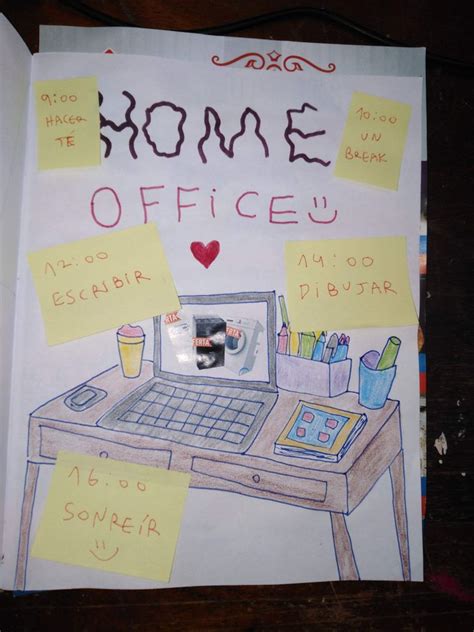 9:00
HACER
TÉ
10:00
UN
BREAK
HOME
OFFICE
12:00
ESCRIBIR
14:00
DIBUJAR
FERTA
16:00
SONREÍR